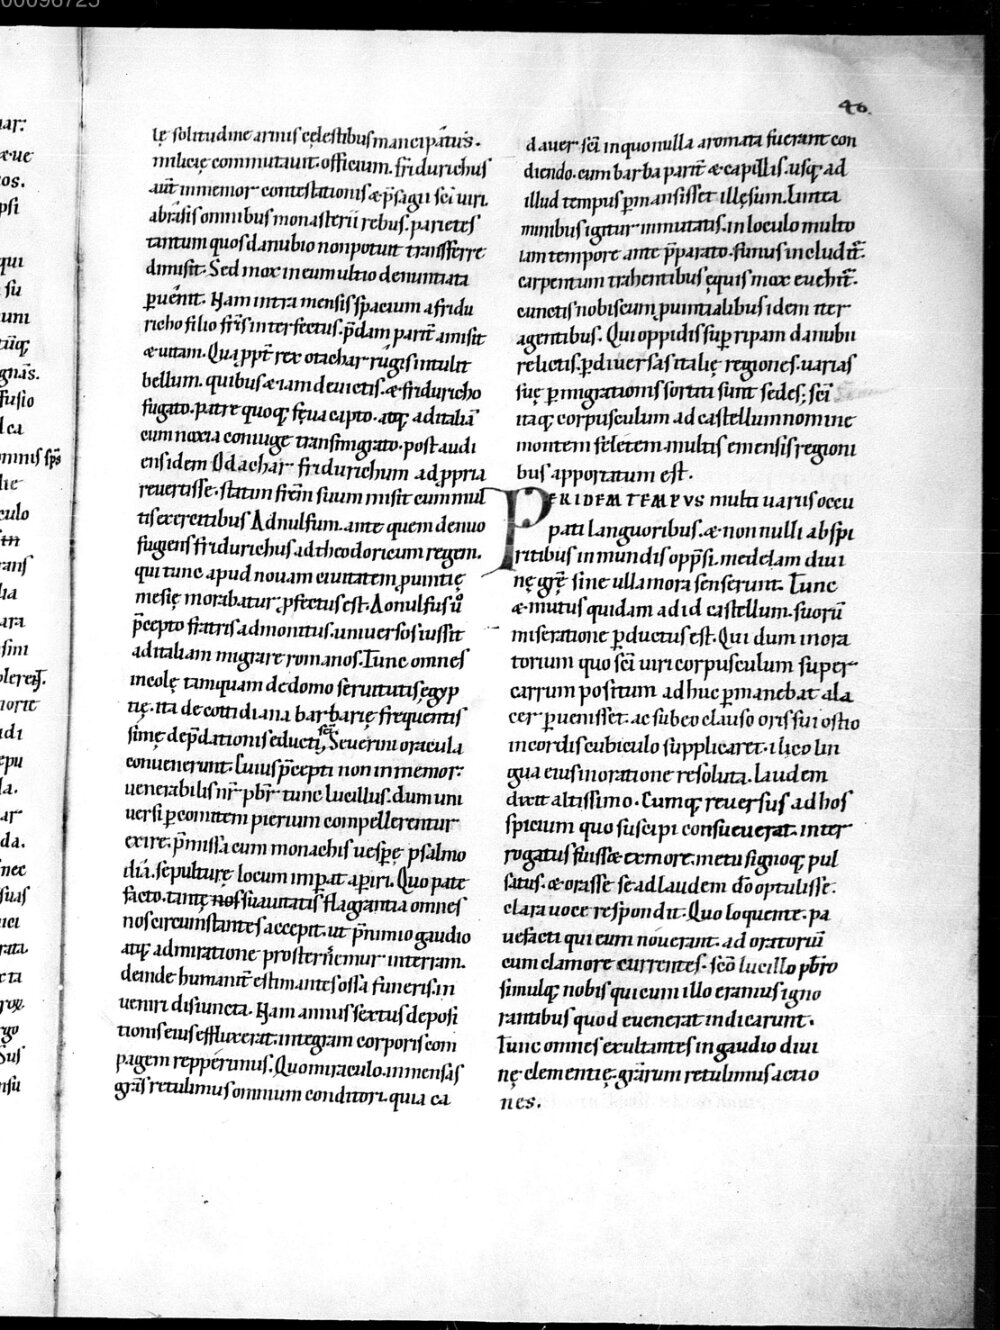 00098725
40.
lę solitudine armis cęlestibus mancipatus.
miliciẹ commutauit officium. fridurichus
aut̄ inmemor contestationis & p̄sagii sc̄i uiri.
abrasis omnibus monasterii rebus. parietes
tantum quos danubio non potuit transferre
dimisit. Sed mox in eum ultio denuntiata
ꝑuenit. Nam intra mensis spacium a fridu
richo filio fr̄is interfectus. p̄dam parit̄ amisit
& uitam. Quaꝓpt̄ rex otachar rugis intulit
bellum. quibus & iam deuictis. & friduricho
fugato. patre quoq; fęua capto. atq; ad italiā
cum noxia coniuge transmigrato. post audi
ens idem Odachar fridurichum ad ꝓpria
reuertisse. statim frēm suum misit cum mul
tis exercitibus Adnulfum. ante quem denuo
fugiens fridurichus ad theodoricum regem.
qui tunc apud nouam ciuitatem ꝓuintię
mesię morabatur. ꝓfectus est. Aonulfus ů
p̄cepto fratris admonitus. uniuersos iussit
ad italiam migrare romanos. Tunc omnes
incolę tamquam de domo seruitutis ęgyp
tię. ita de cottidiana barbarię frequentis
simę dep̄dationis educti, sc̄i Seuerini oracula
conuenerunt. Cuius p̄cepti non inmemor
uenerabilis nr̄ pbr̄ tunc lucillus. dum uni
uersi ꝑ comitem pierium compellerentur
exire. p̄missa cum monachis uesꝑę psalmo
dia. sepulturę locum imꝑat aꝑiri. Quo pate
facto. tantę nos suauitatis flagrantia omnes
nos circumstantes accepit. ut p̄ nimio gaudio
atq; admiratione prosterňemur in terram.
deinde humanit̄ estimantes ossa funeris in
ueniri disiuncta. Nam annus sextus deposi
tionis eius effluxerat. integram corporis com
pagem repperimus. Quo miraculo. inmensas
grās retulimus omnium conditori. quia ca
dauer sc̄i in quo nulla aromata fuerant con
diendo. cum barba parit̄ & capillis. usq; ad
illud tempus ꝑmansisset illęsum. Lintea
minibus igitur inmutatis. in loculo multo
iam tempore ante p̄parato. funus includit̄.
carpentum trahentibus ęquis mox euehit̄.
cunctis nobiscum ꝓuintialibus idem iter
agentibus. Qui oppidis suꝑ ripam danubii
relictis. ꝑ diuersas italię regiones. uarias
suę ꝑmigrationis sortiti sunt sedes; sc̄i
itaq; corpusculum ad castellum nomine
montem feletem. multis emensis regioni
bus apportatum est.
PER IDEM TEMPVS multi uariis occu
pati languoribus. & non nulli ab spi
ritibus inmundis opp̄si. medelam diui
nę grę̄ sine ulla mora senserunt. Tunc
& mutus quidam ad id castellum. suorū
miseratione ꝑductus est. Qui dum in ora
torium quo sc̄i uiri corpusculum super
carrum positum adhuc ꝑmanebat ala
cer ꝑuenisset. ac sub eo clauso oris sui ostio
in cordis cubiculo supplicaret. ilico lin
gua eius in oratione resoluta. laudem
dixit altissimo. Cumq; reuersus ad hos
spicium quo suscipi consueuerat. inter
rogatus fuisse ex more. metu signoq; pul
satus. & orasse se ad laudem dō optulisse.
clara uoce respondit. Quo loquente. pa
uefacti qui eum nouerant. ad oratoriū
cum clamore currentes. scō lucillo pbr̄o
simulq; nobis qui cum illo eramus igno
rantibus quod euenerat indicarunt.
Tunc omnes exultantes in gaudio diui
nę clementię grārum retulimus actio
nes.